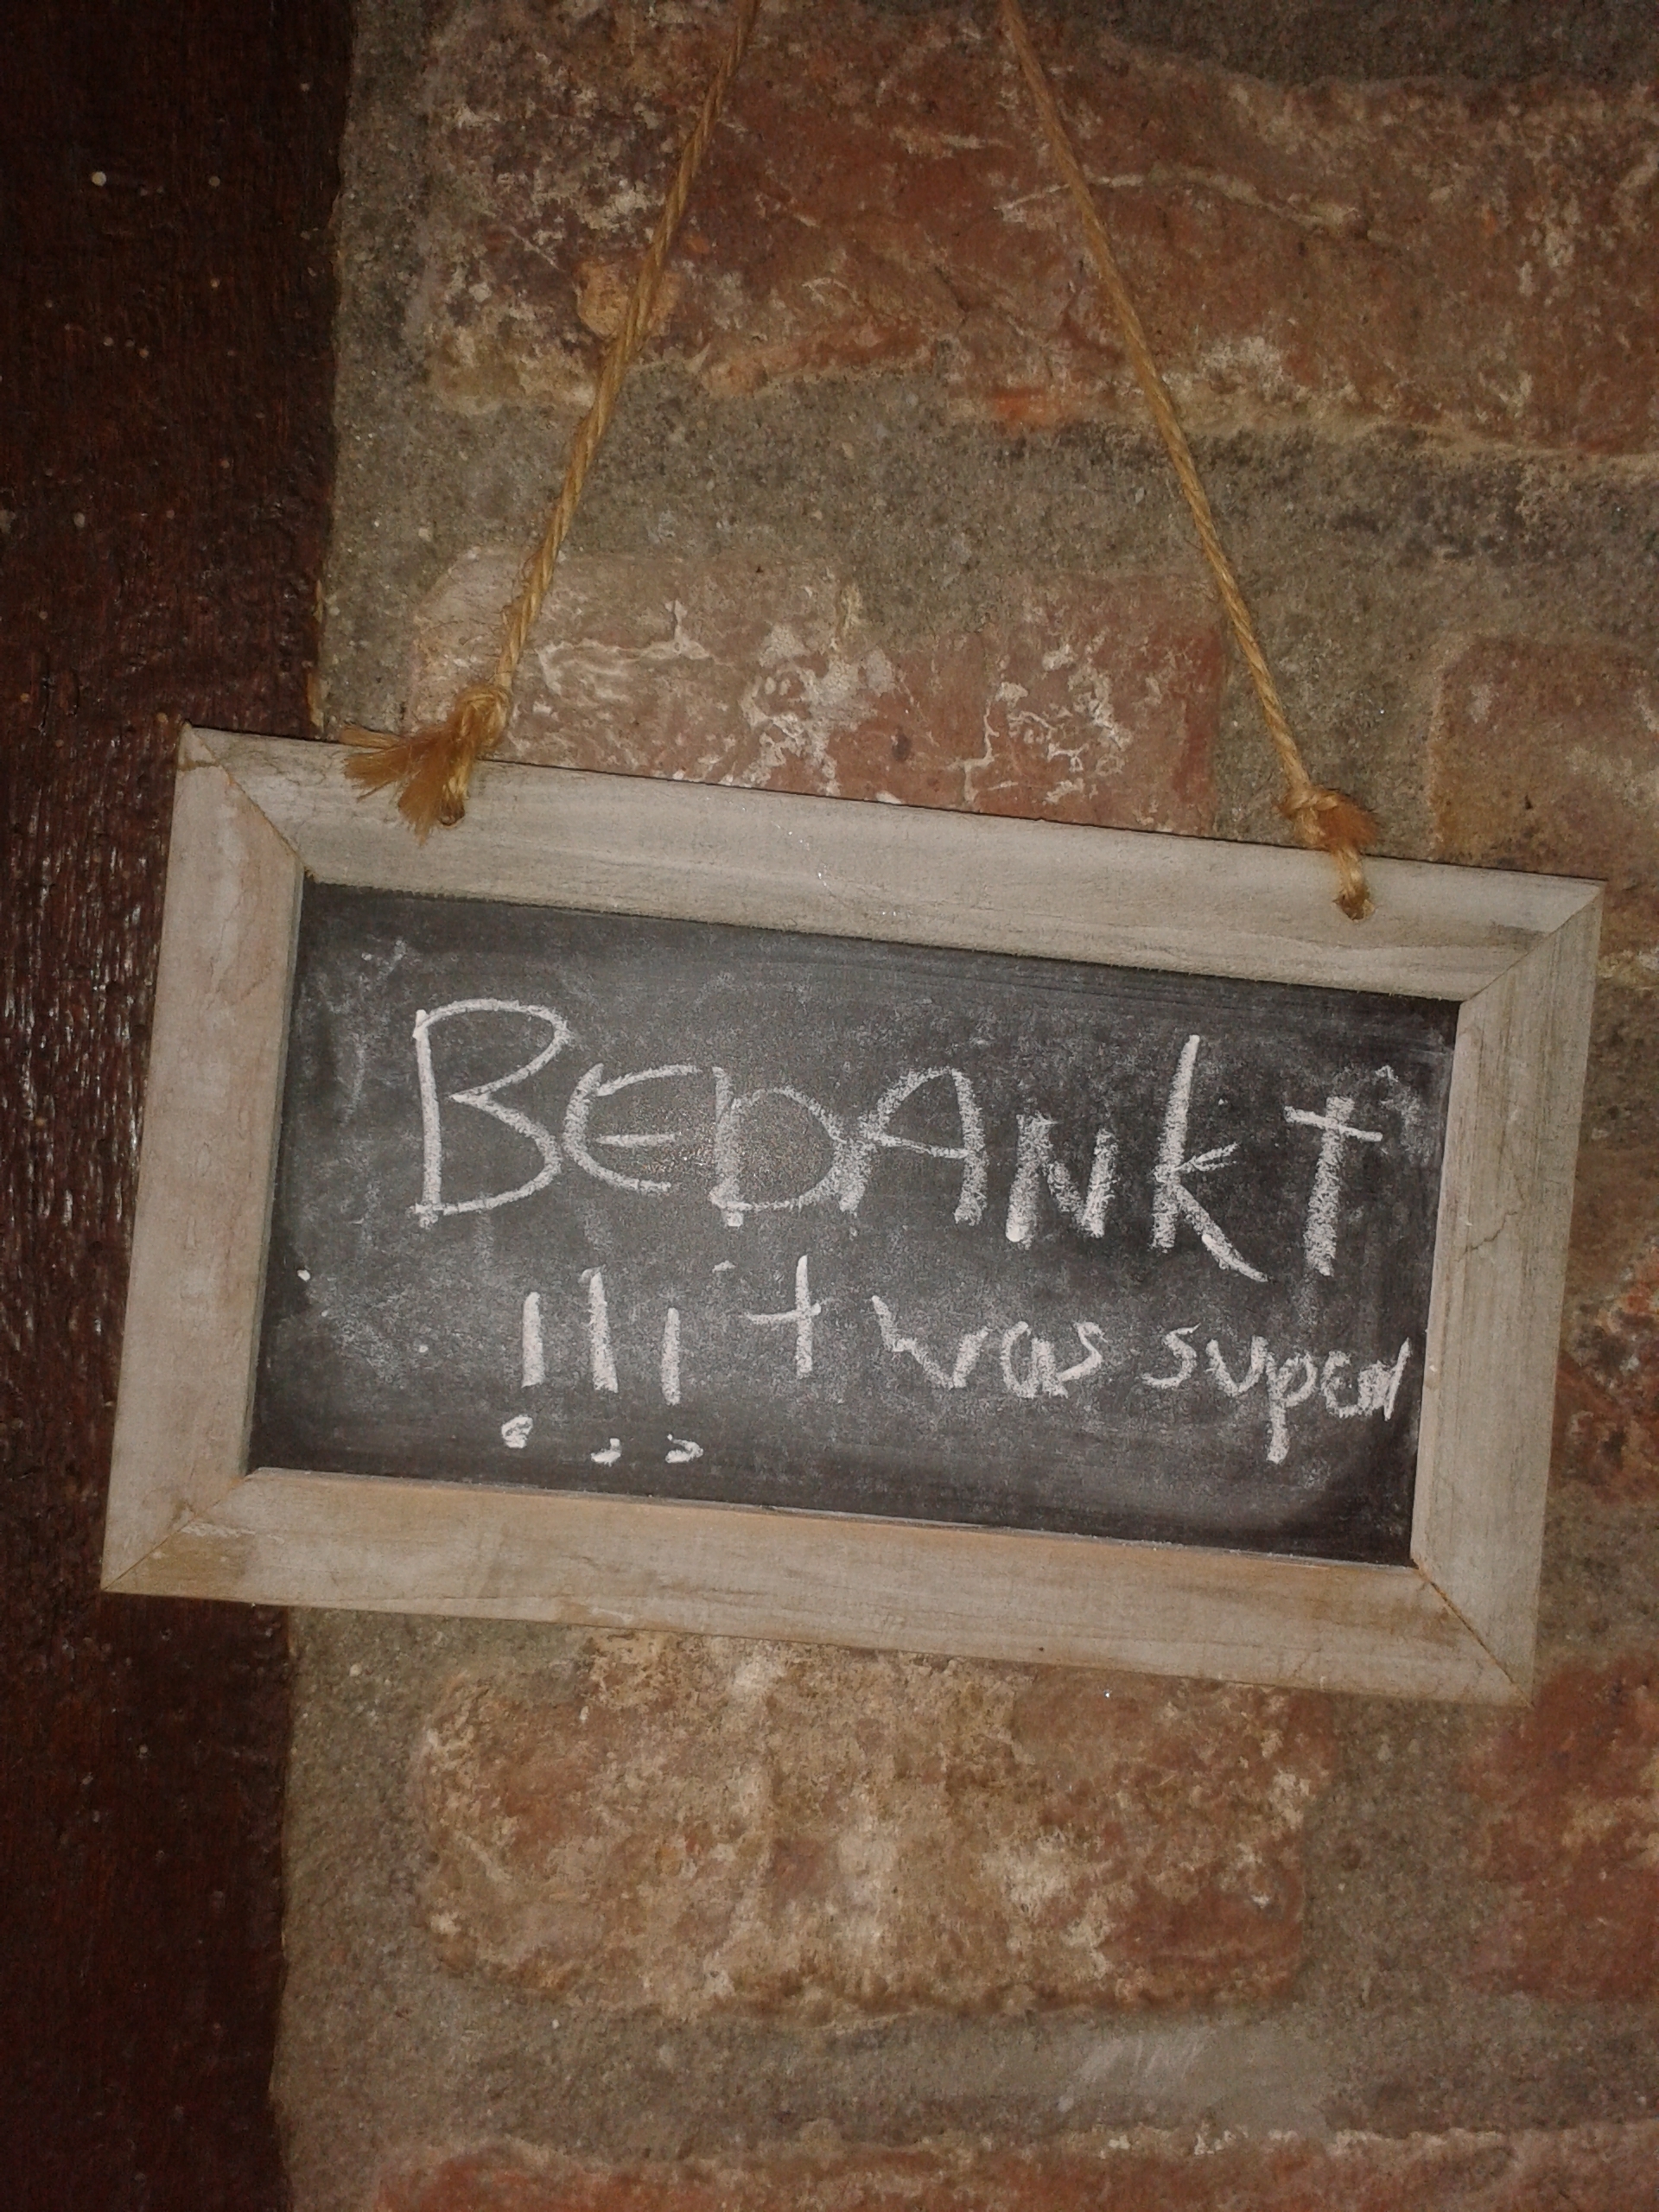 BEDANkt
!!! 't was super